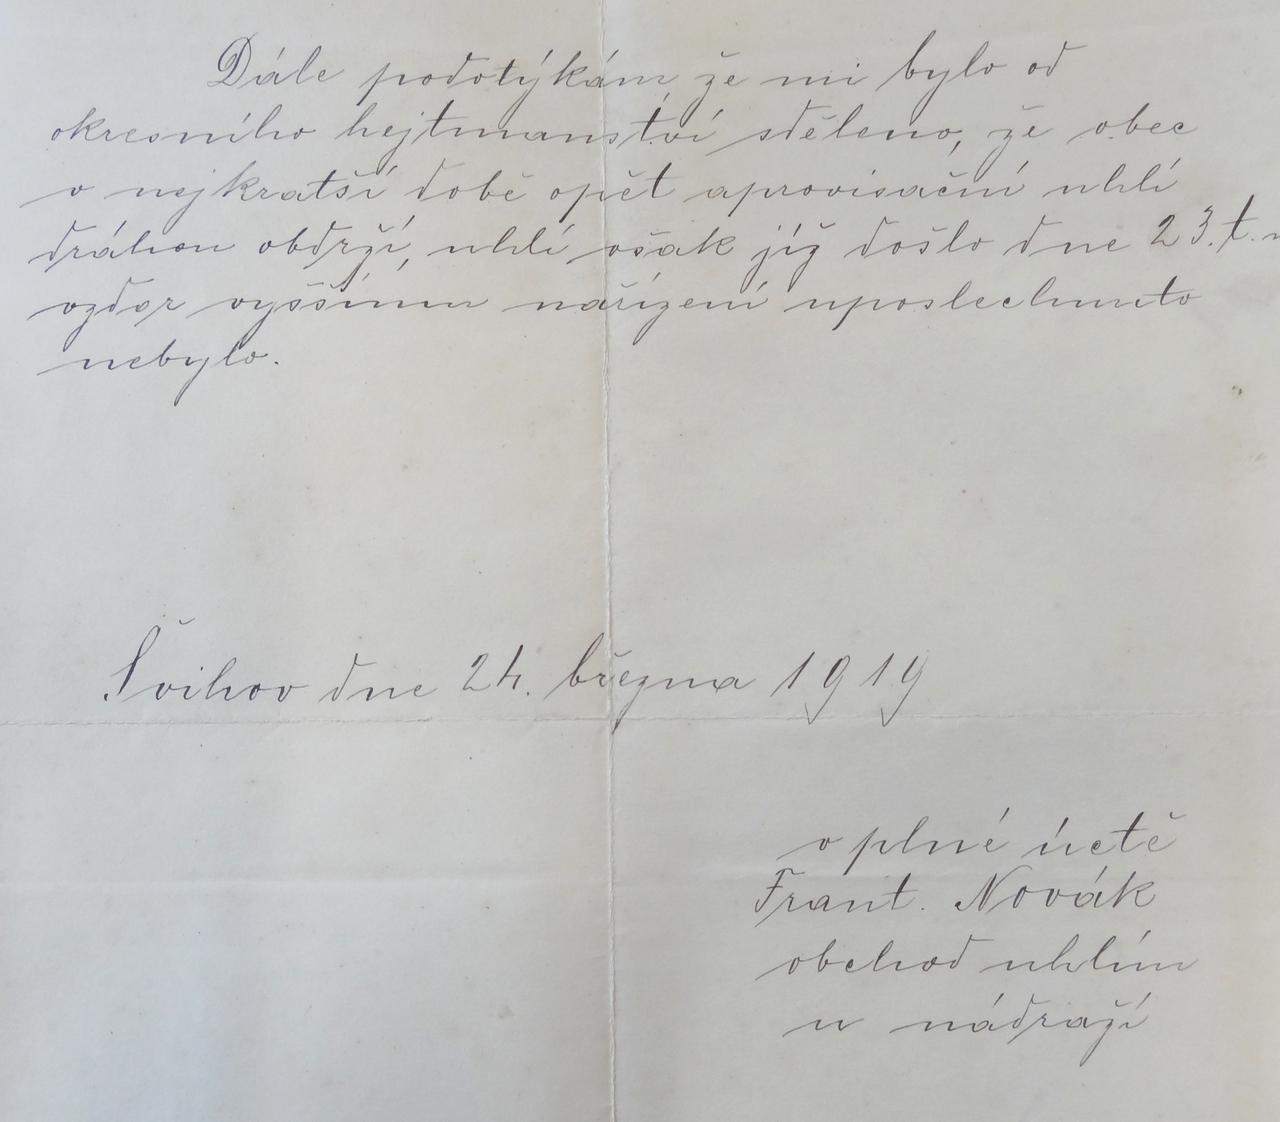 Dále podotýkám, že mi bylo od
okresního hejtmanství sděleno, že obec
v nejkratší době opět aprovisační uhlí
dráhou obdrží, uhlí však již došlo dne 23. t. m
vzdor vyššímu nařízení uposlechnuto
nebylo.
Švihov dne 24. března 1919
v plné úctě
Frant. Novák
obchod uhlím
u nádraží